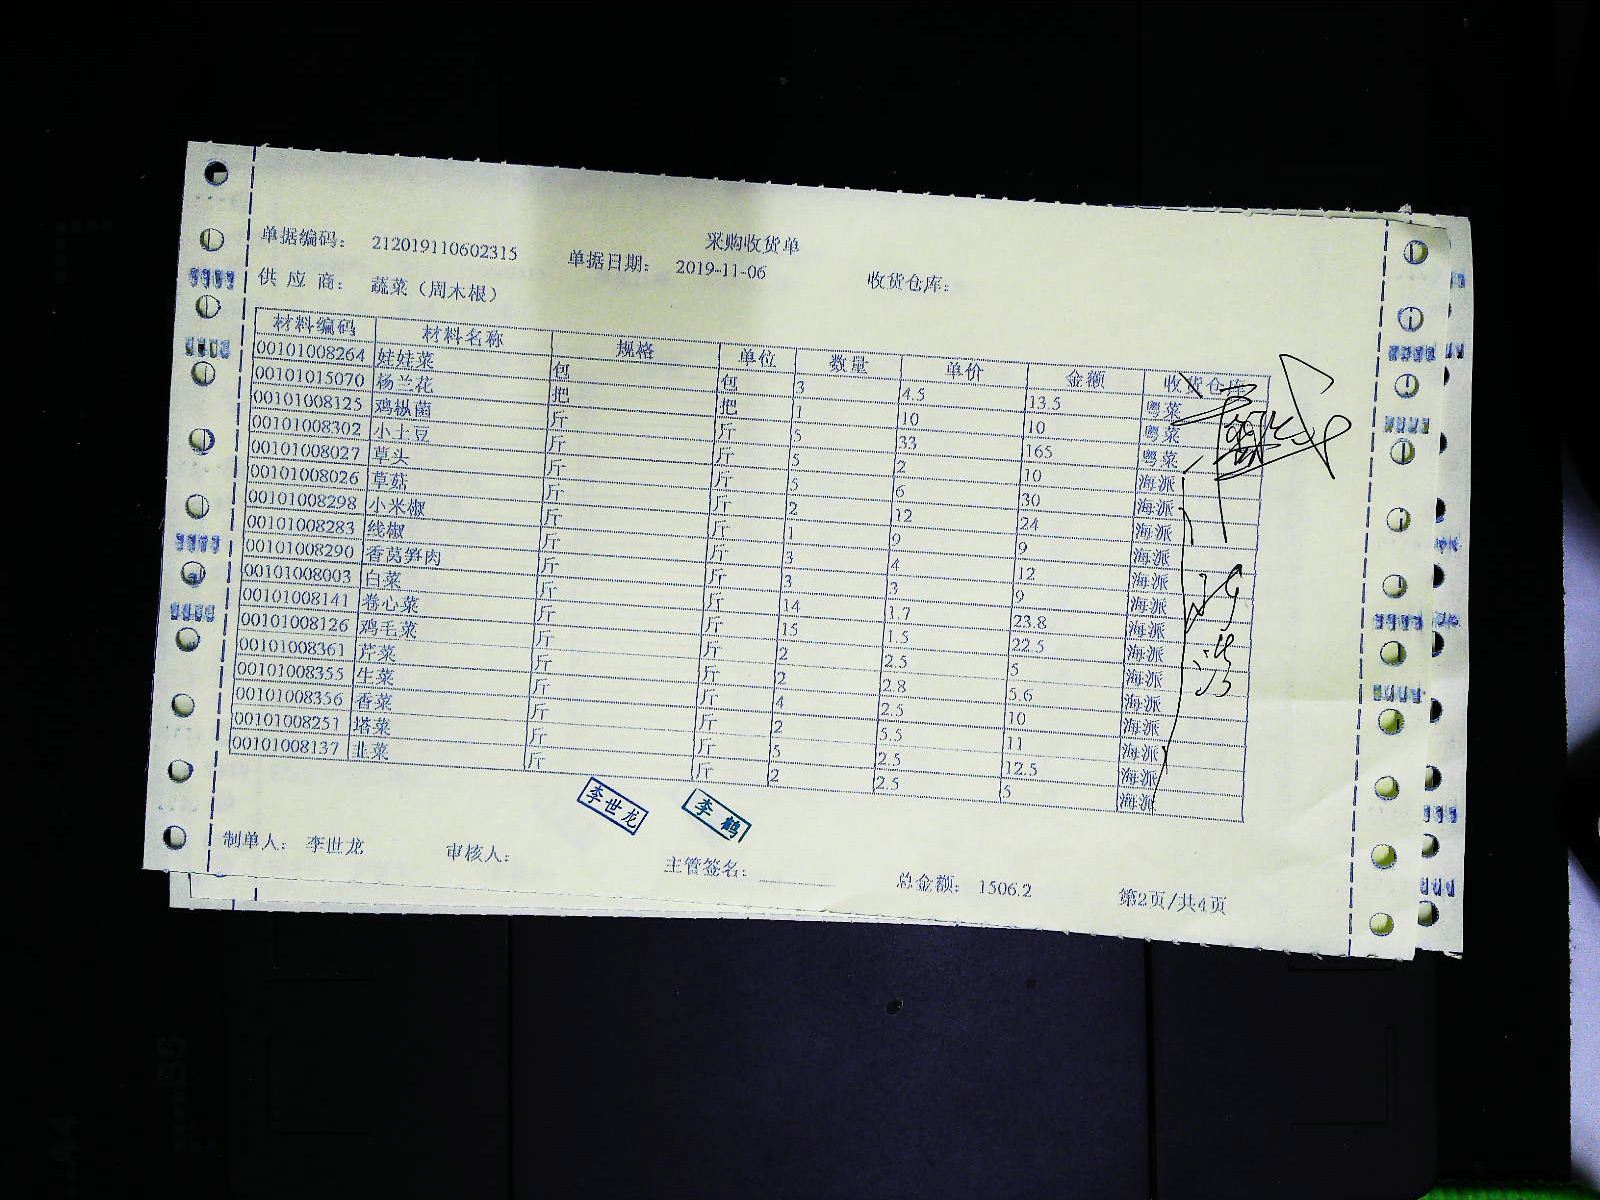 采购收货单
单据编码: 212019110602315 单据日期: 2019-11-06 收货仓库:
供 应 商: 蔬菜（周木根）
材料编码 材料名称 规格 单位 数量 单价 金额 收货仓库
00101008264 娃娃菜 包 包 3 4.5 13.5 粤菜
00101015070 杨兰花 把 把 1 10 10 粤菜
00101008125 鸡枞菌 斤 斤 5 33 165 粤菜
00101008302 小土豆 斤 斤 5 2 10 海派
00101008027 草头 斤 斤 5 6 30 海派
00101008026 草菇 斤 斤 2 12 24 海派
00101008298 小米椒 斤 斤 1 9 9 海派
00101008283 线椒 斤 斤 3 4 12 海派
00101008290 香莴笋肉 斤 斤 3 3 9 海派
00101008003 白菜 斤 斤 14 1.7 23.8 海派
00101008141 卷心菜 斤 斤 15 1.5 22.5 海派
00101008126 鸡毛菜 斤 斤 2 2.5 5 海派
00101008361 芹菜 斤 斤 2 2.8 5.6 海派
00101008355 生菜 斤 斤 4 2.5 10 海派
00101008356 香菜 斤 斤 2 5.5 11 海派
00101008251 塔菜 斤 斤 5 2.5 12.5 海派
00101008137 韭菜 斤 斤 2 2.5 5 海派
李世龙 李鹤
制单人: 李世龙 审核人: 主管签名: 总金额: 1506.2 第2页/共4页